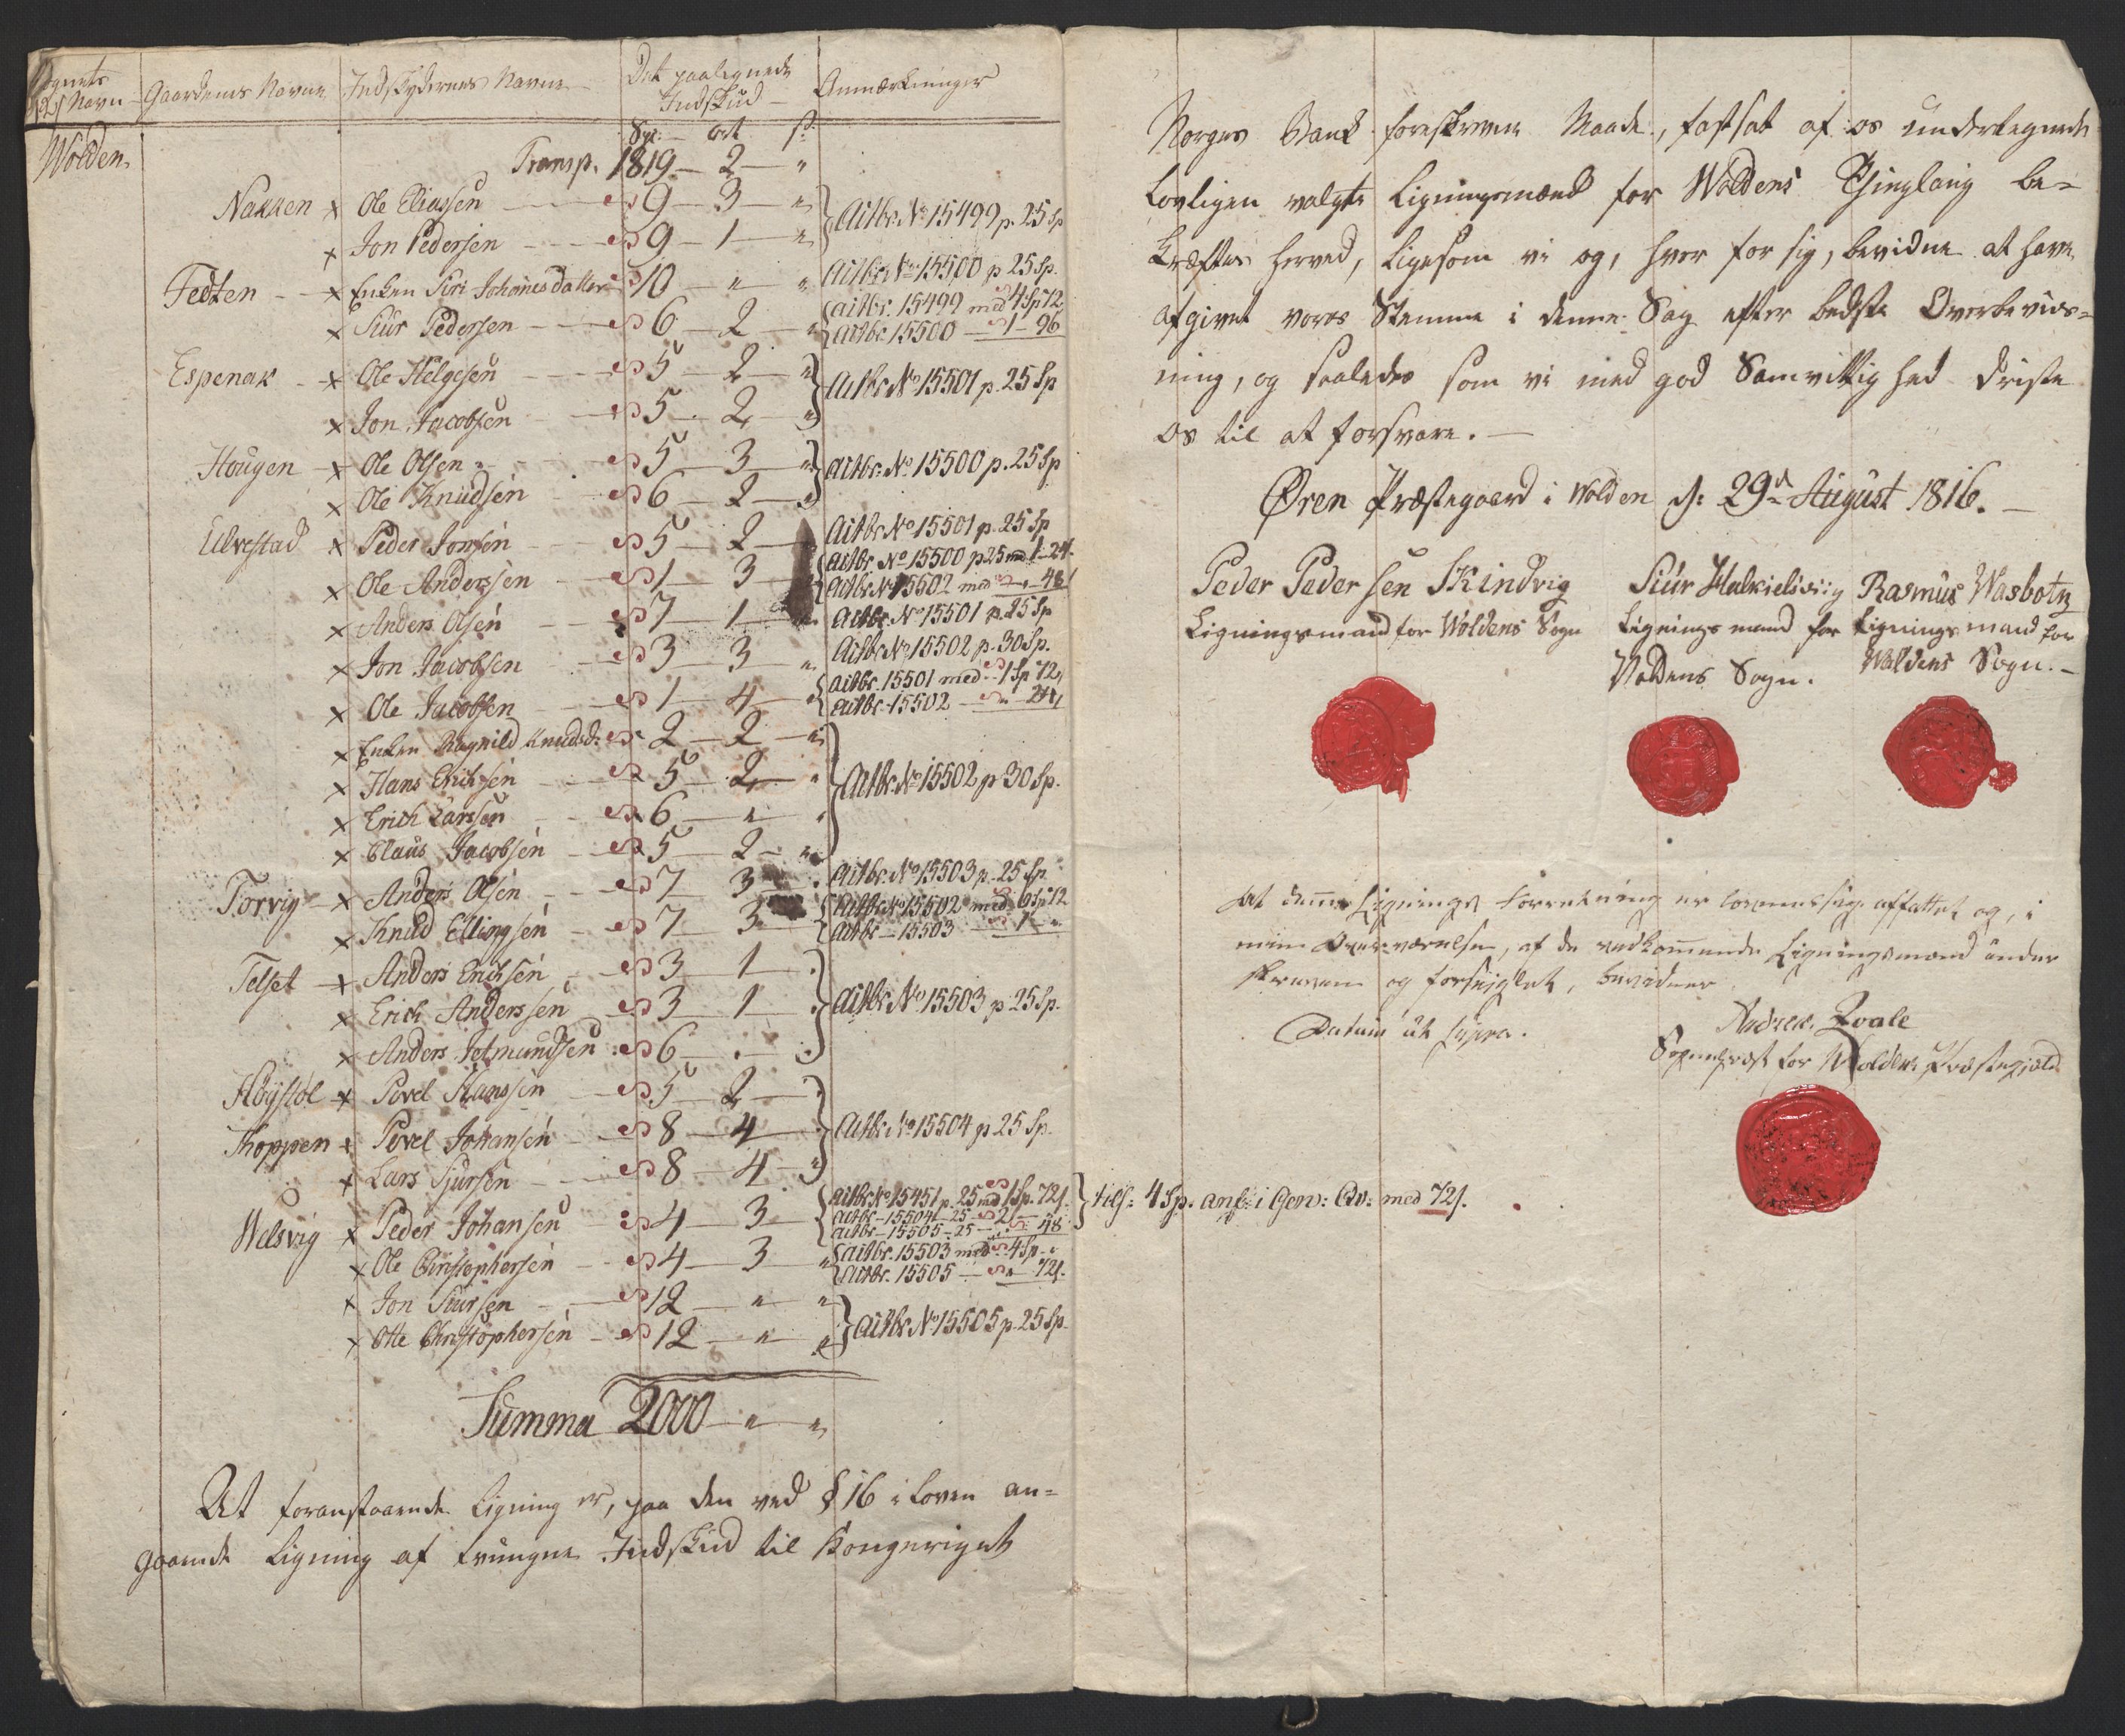 Sognets Navn Gaardenes Navne Indskydernes Navne Det paalignede Indskud Anmærkninger
Spd. ort s.
Wolden Transp. 1819 - 2 - "
Nakken x Ole Eliassen - 9 - 3 - "
x Jon Pedersen - 9 - 1 - " } Actbr. No 15499 p. 25 Sp
Fedten x Enken Siri Johannesdatter 10 - " - " Actbr. No 15500 p 25 Sp.
x Siur Pedersen - 6 - 2 - " { actbr. 15499 med 4 Sp 72
actbr. 15500 - 1 - 96
Espenak x Ole Helgesen - 5 - 2 - "
x Jon Jacobsen - 5 - 2 - " } Actbr No 15501 p. 25 Sp
Hougen x Ole Olsen - 5 - 3 - "
x Ole Knudsen - 6 - 2 - " } actbr. No 15500 p. 25 Sp
Ulvestad x Peder Jonsen - 5 - 2 - Actbr No 15501 p. 25 Sp
x Ole Anderssen - 1 - 3 - { Actbr No 15500 p 25 med 1 - 24
Actbr No 15502 med " 48
x Anders Olsen - 7 - 1 - Actbr. No 15501 p. 25 Sp
x Jon Jacobsen - 3 - 3 - " Actbr No 15502 p. 30 Sp.
x Ole Jacobsen - 1 - 4 - " { actbr. 15501 med 1 Sp 72
actbr. 15502 - " 24
x Enken Ragnild Knudsd: 2 - 2 - "
x Hans Erichsen - 5 - 2 - "
x Erich Larssen - 6 - " - " } Actbr. No 15502 p 30 Sp.
x Claus Jacobsen - 5 - 2 - "
Torvig x Anders Olsen - 7 - 3 - Actbr. No 15503 p. 25 Sp.
x Knud Ellingsen - 7 - 3 - { Actbr No 15502 med 6 Sp 72
actbr - 15503 - 1 - "
Telset x Anders Erichsen - 3 - 1
x Erich Anderssen - 3 - 1 } Actbr No 15503 p 25 Sp.
x Anders Jetmundsen - 6 - "
Høÿstøl x Povel Hanssen - 5 - 2 -
Koppen x Povel Johansen - 8 - 4 - } Actbr No 15504 p 25 Sp.
x Lars Sjursen - 8 - 4 - "
Welsvig x Peder Johansen - 4 - 3 - { actbr No 15451 p. 25 med 1 Sp. 72 s. } tils: 4 Sp. anf: i Gen: Qv: med 72 s.
actbr - 15504 - 25 - 2 -
actbr - 15505 - 25 - " 48
x Ole Christophersen - 4 - 3 - " { actbr. 15503 med 4 Sp - "
actbr. 15505 - " 72 s.
x Jon Siursen - 12 - " - "
x Otte Christophersen - 12 - " - " } actbr No 15505 p. 25 Sp.
Summa 2000 - " - "
At foranstaaende Ligning er, paa den ved § 16 i Loven an=
gaaende Ligning af tvungne Indskud til Kongeriget
Norges Bank foreskrevne Maade, fastsat af os undertegnede
Lovligen valgte Ligningsmænd for Woldens Thinglaug be=
kræftes herved, ligesom vi og, hver for sig, bevidne at have
afgivet vores Stemme i denne Sag efter bedste Overbeviis=
ning, og saaledes som vi med god Samvittighed driste
os til at forsvare. -
Øren Præstegaard i Wolden d: 29de August 1816. -
Peder Pedersen Skindvig Siur Halkielsviig Rasmus Wasbotn
Ligningsmand for Woldens Sogn Ligningsmand for Ligningsmand for
Voldens Sogn. Woldens Sogn. -
At denne Lignings Forretning er lovmessig affattet og, i
min Overværelse, af de vedkommende Ligningsmænd under
skreven og forseiglet, bevidner
Datum ut supra.
Andreas Qvale
Sogneprest for Woldens Præstegield